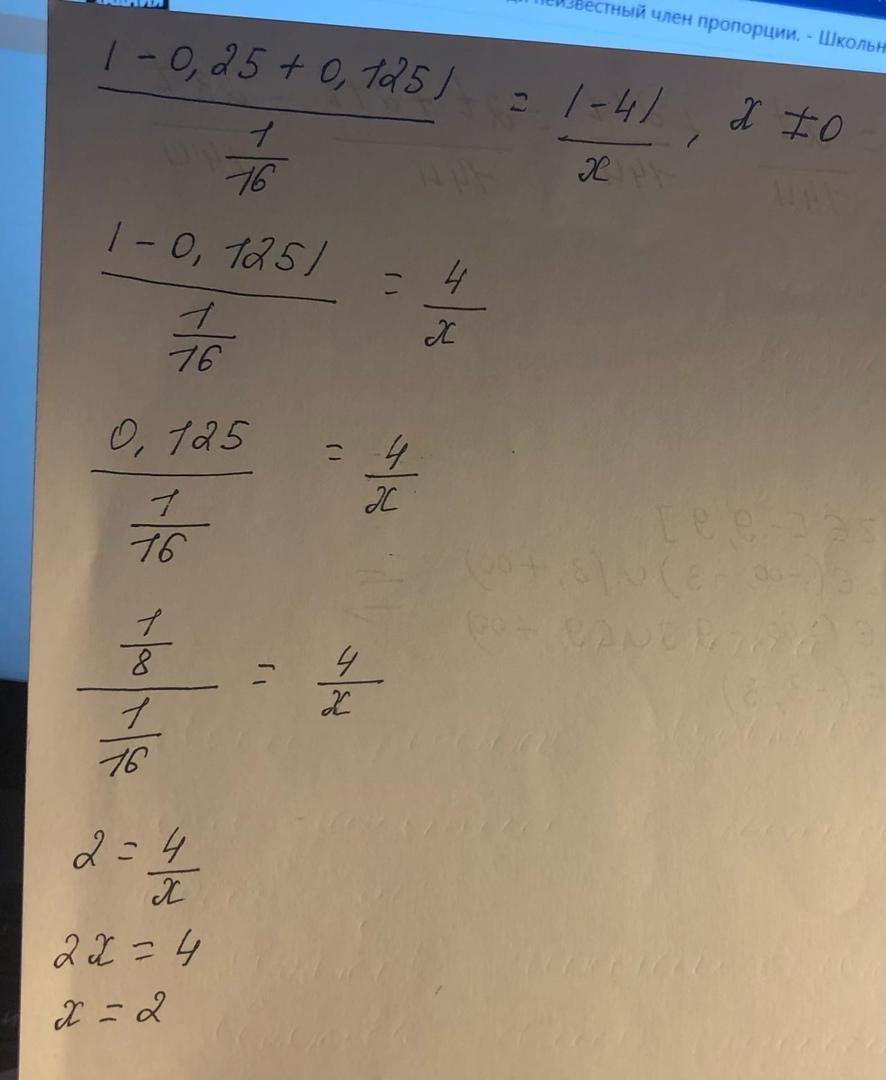 неизвестный член пропорции. - Школьн
|-0,25 + 0,125| / 1/16 = |-4| / x , x ≠ 0
|-0,125| / 1/16 = 4/x
0,125 / 1/16 = 4/x
1/8 / 1/16 = 4/x
2 = 4/x
2x = 4
x = 2